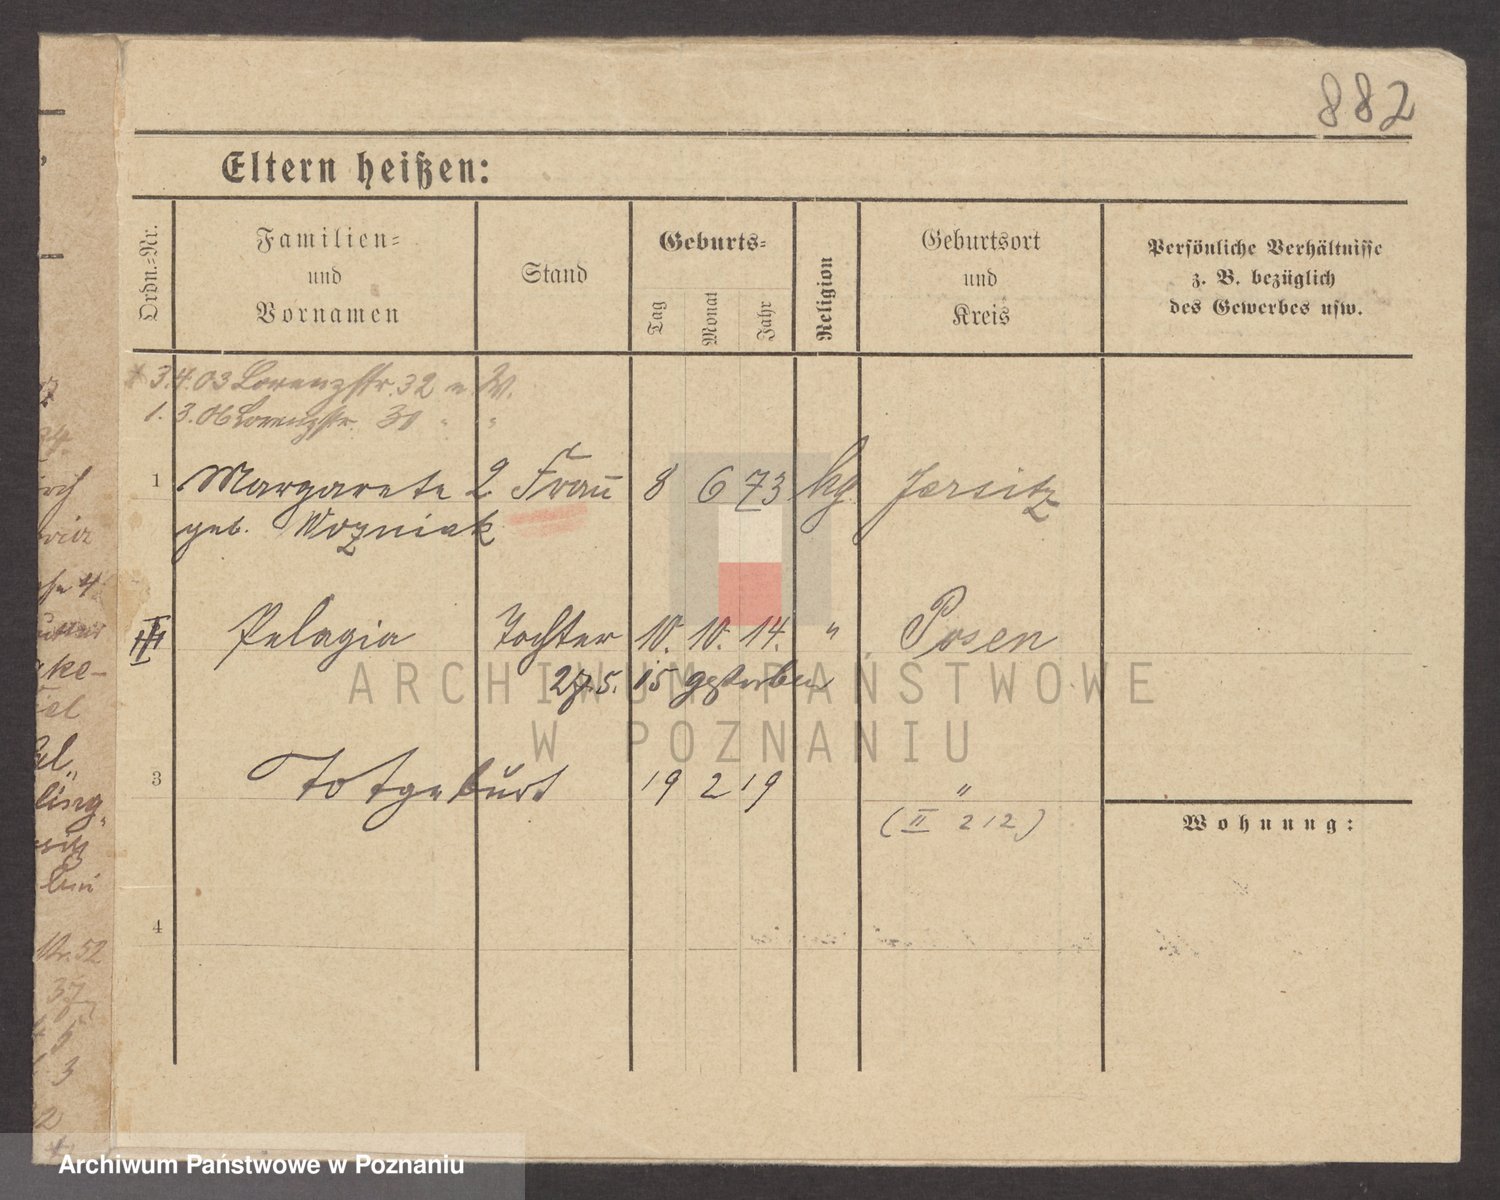 882
Eltern heißen:
Ordn.-Nr.
Familien-
und
Vornamen
Stand
Geburts-
Tag
Monat
Jahr
Religion
Geburtsort
und
Kreis
Persönliche Verhältnisse
z. B. bezüglich
des Gewerbes usw.
3.4.03 Lorenzstr. 32 n. W.
1.3.06 Lorenzstr. 30 " "
1 Margarete 2 Frau 8 6 73 kg Jersitz
geb. Wozniak
III Pelagia Tochter 10. 10. 14. " Posen
27.5.15 gestorben
3 Totgeburt 19 2 19 "
(II 212)
Wohnung:
4
Nr. 52
37
3
ARCHIWUM PAŃSTWOWE
W POZNANIU
Archiwum Państwowe w Poznaniu